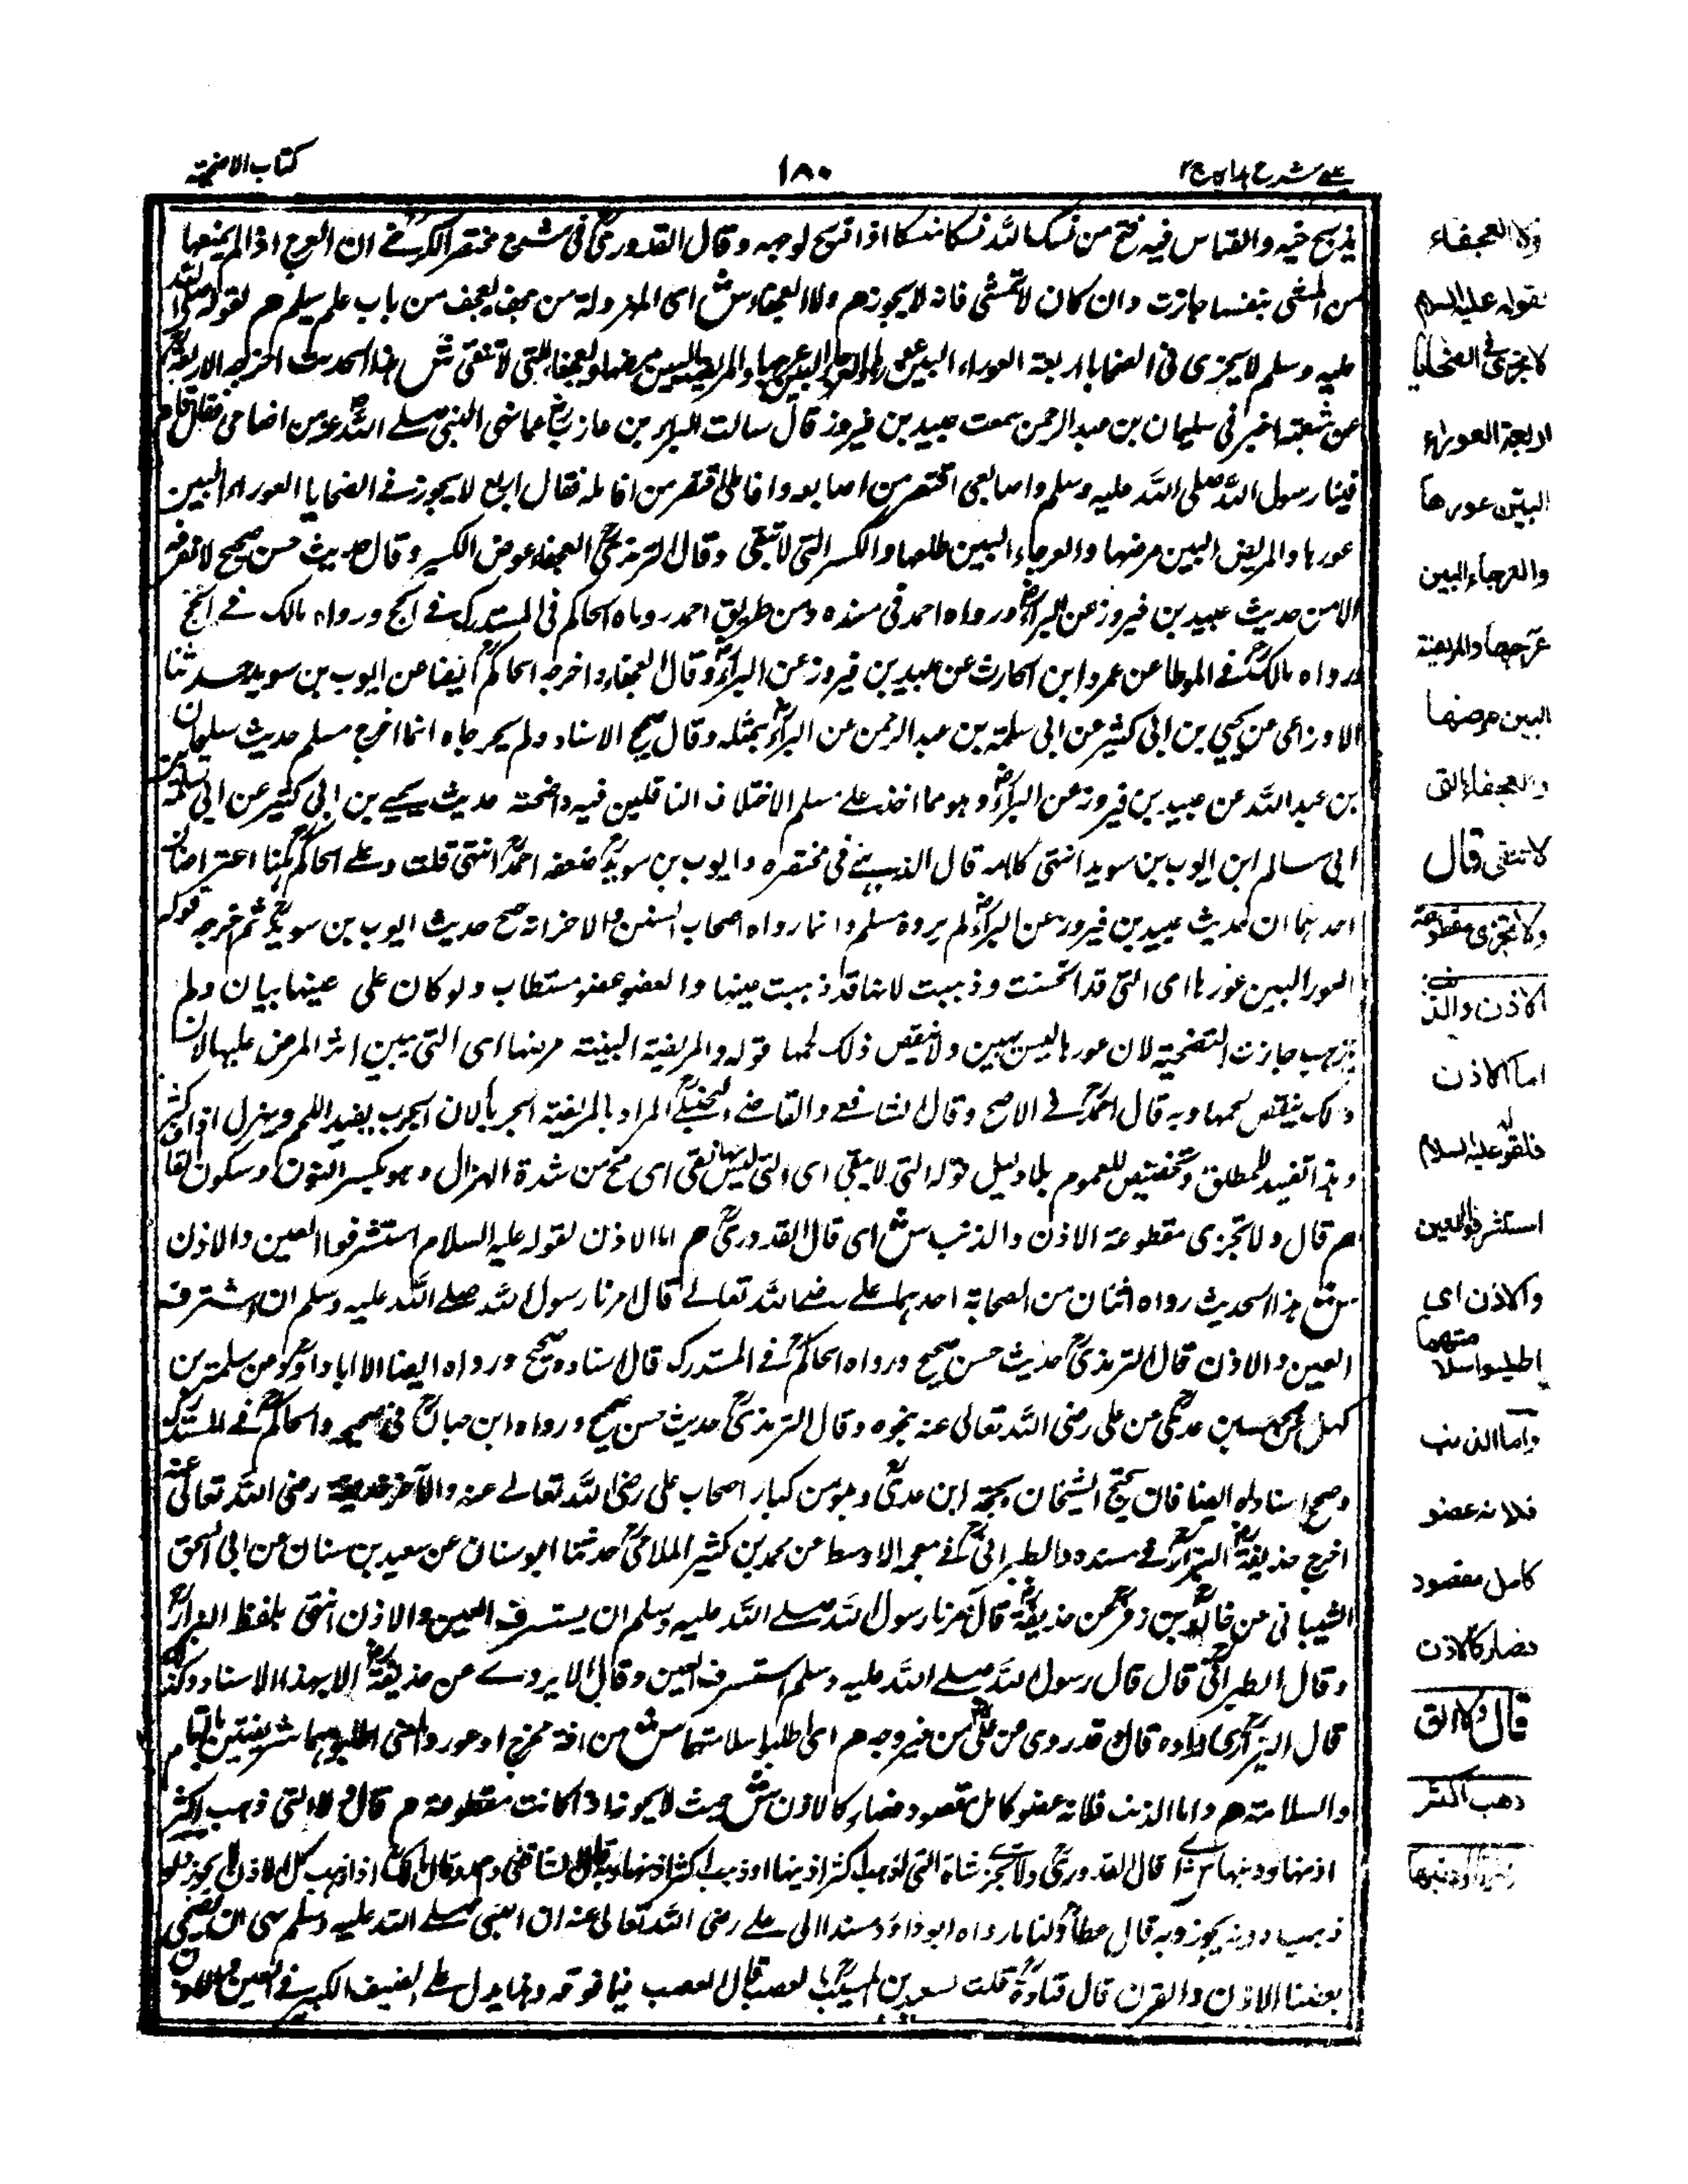 كتاب الاضحية
١٨٠
يذبح فيه والقياس فيه فتح من نسك لله نسكا منسكا اذا ذبح لوجهه وقال القدوري في شرح مختصر الكرخي ان العرج اذا لم يمنعها
من المشي بنفسها جازت وان كان لا تمشي فانه لا يجوز م ولا العجفاء ش اى المهزولة من عجف يعجف من باب علم يعلم م لقوله صلى الله
عليه وسلم لا يجزى فى الضحايا اربعة العوراء البين عورها والعرجاء البين عرجها والمريضة البين مرضها والعجفاء التى لا تنقى ش هذا الحديث اخرجه الاربعة
عن شعبة اخبرنى سليمان بن عبدالرحمن سمعت عبيد بن فيروز قال سالت البراء بن عازب عما نهى النبى صلے الله من اضاحى فقال قام
فينا رسول الله صلى الله عليه وسلم واصابعى اقصر من اصابعه واناملى اقصر من انامله فقال اربع لا يجوز فے الضحايا العوراء البين
عورها والمريض البين مرضها والعرجاء البين ظلعها والكسر التى لا تنقى وقال الترمذى العجفاء عوض الكسير وقال حديث حسن صحيح لا نعرفه
الا من حديث عبيد بن فيروز عن البراء ورواه احمد فى مسنده ومن طريق احمد رواه الحاكم فى المستدرك فے الحج ورواه مالك فے الحج
ورواه مالك فے الموطا عن عمرو ابن الحارث عن عبيد بن فيروز عن البراء وقال العجفاء واخرجه الحاكم ايضا عن ايوب بن سويد حدثنا
الاوزاعى عن يحيى بن ابى كثير عن ابى سلمة بن عبد الرحمن عن البراء بمثله وقال صحيح الاسناد ولم يخرجاه انما اخرج مسلم حديث سليمان
بن عبد الله عن عبيد بن فيروز عن البراء وهو مما اخذ على مسلم لاختلاف الناقلين فيه واصحته حديث يحيے بن ابى كثير عن ابى سلمة
ابى سالم ابن ايوب بن سويد انتهى كلامه قال الذهبے فى مختصره وايوب بن سويد ضعفه احمد انتهى قلت وعلى الحاكم هنا اعتراضان
احدهما ان حديث عبيد بن فيروز عن البراء لم يروه مسلم وانما رواه اصحاب السنن والاخر انه صحح حديث ايوب بن سويد ثم جرحه قوله
العوراء البين عورها اى التى قد انخسفت وذهبت لانها قد ذهبت عينها والعضو عضو مستطاب ولو كان على عينها بياض ولم
يذهب جازت التضحية لان عورها ليس ببين ولا ينقص ذلك لحمها قوله والمريضة البينة مرضها اى التى يبين اثر المرض عليها لان
ذلك ينقص لحمها وبه قال احمد فے الاصح وقال الشافعے والقاضے الحنبلے المراد بالمريضة الجرباء لان الجرب يفسد اللحم ويهزل اذا كثر
وهذا تقييد للمطلق وتخصيص للعموم بلا دليل قوله التى لا تنقى اى التى ليس لها نقى اى مخ من شدة الهزال وهو بكسر النون وسكون القاف
م قال ولا تجزى مقطوعة الاذن والذنب ش اى قال القدورى م اما الاذن لقوله عليه السلام استشرفوا العين والاذن
ش هذا الحديث رواه اثنان من الصحابة احدهما على رضى الله تعالے قال امرنا رسول الله صلے الله عليه وسلم ان نستشرف
العين والاذن قال الترمذى حديث حسن صحيح ورواه الحاكم فے المستدرك قال اسناده صحيح ورواه ايضا الا ابا داود عن سلمة بن
كهيل عن عدى عن على رضى الله تعالى عنه نحوه وقال الترمذى حديث حسن صحيح ورواه ابن حبان فى صحيحه والحاكم فے المستدرك
وصحح اسناده ايضا فان الشيخان بحجية ابن عدى وهو من كبار اصحاب على رضى الله تعالے عنه والآخر حذيفة رضى الله تعالى عنه
اخرج حذيفة البزار فے مسنده والطبرانى فے معجمه الاوسط عن محمد بن كثير الملائى حدثنا ابو سنان عن سعيد بن سنان عن ابى اسحق
الشيبانى عن بن زفر عن حذيفة قال امرنا رسول الله صلے الله عليه وسلم ان يستشرف العين والاذن انتهى بلفظ البزار
وقال الطبرانى قال قال رسول الله صلے الله عليه وسلم استشرف العين وقال لا يروے عن حذيفة الا بهذا الاسناد وكذا
قال البزار وزاده قال قد روى من على من غير وجه م اى اطلبوا سلامتهما ش من افة مخرج او عور والمعنى اطلبوهما شريفتين بالتمام
والسلامة م واما الذنب فلانه عضو كامل مقصود فصار كالاذن ش حيث لا يجوز اذا كانت مقطوعة م قال ولا التى ذهب اكثر
اذنها وذنبها ش اى قال القدورى ولا تجزے شاة التى ذهب اكثر اذنها او ذهب اكثر ذنبها اذا ذهب كل الاذن لا يجوز ولو
ذهب دونه يجوز وبه قال عطاء ولنا ما رواه ابو داود مسندا الى على رضى الله تعالى عنه ان النبى صلے الله عليه وسلم نهى ان يضحى
بعضباء الاذن والقرن قال قتادة قلت لسعيد بن المسيب ما العصب قال النصف فما فوقه وهذا يدل على
ولا العجفاء
لقوله عليه السلام
لا تجزى فى الضحايا
اربعة العوراء
البين عورها
والعرجاء البين
عرجها والمريضة
البين مرضها
والعجفاء التى
لا تنقى قال
ولا تجزى مقطوعة
الاذن والذنب
اما الاذن
فلقوله عليه السلام
استشرفوا العين
والاذن اى
اطلبوا سلامتهما
واما الذنب
فلانه عضو
كامل مقصود
فصار كالاذن
قال ولا التى
ذهب اكثر
اذنها وذنبها